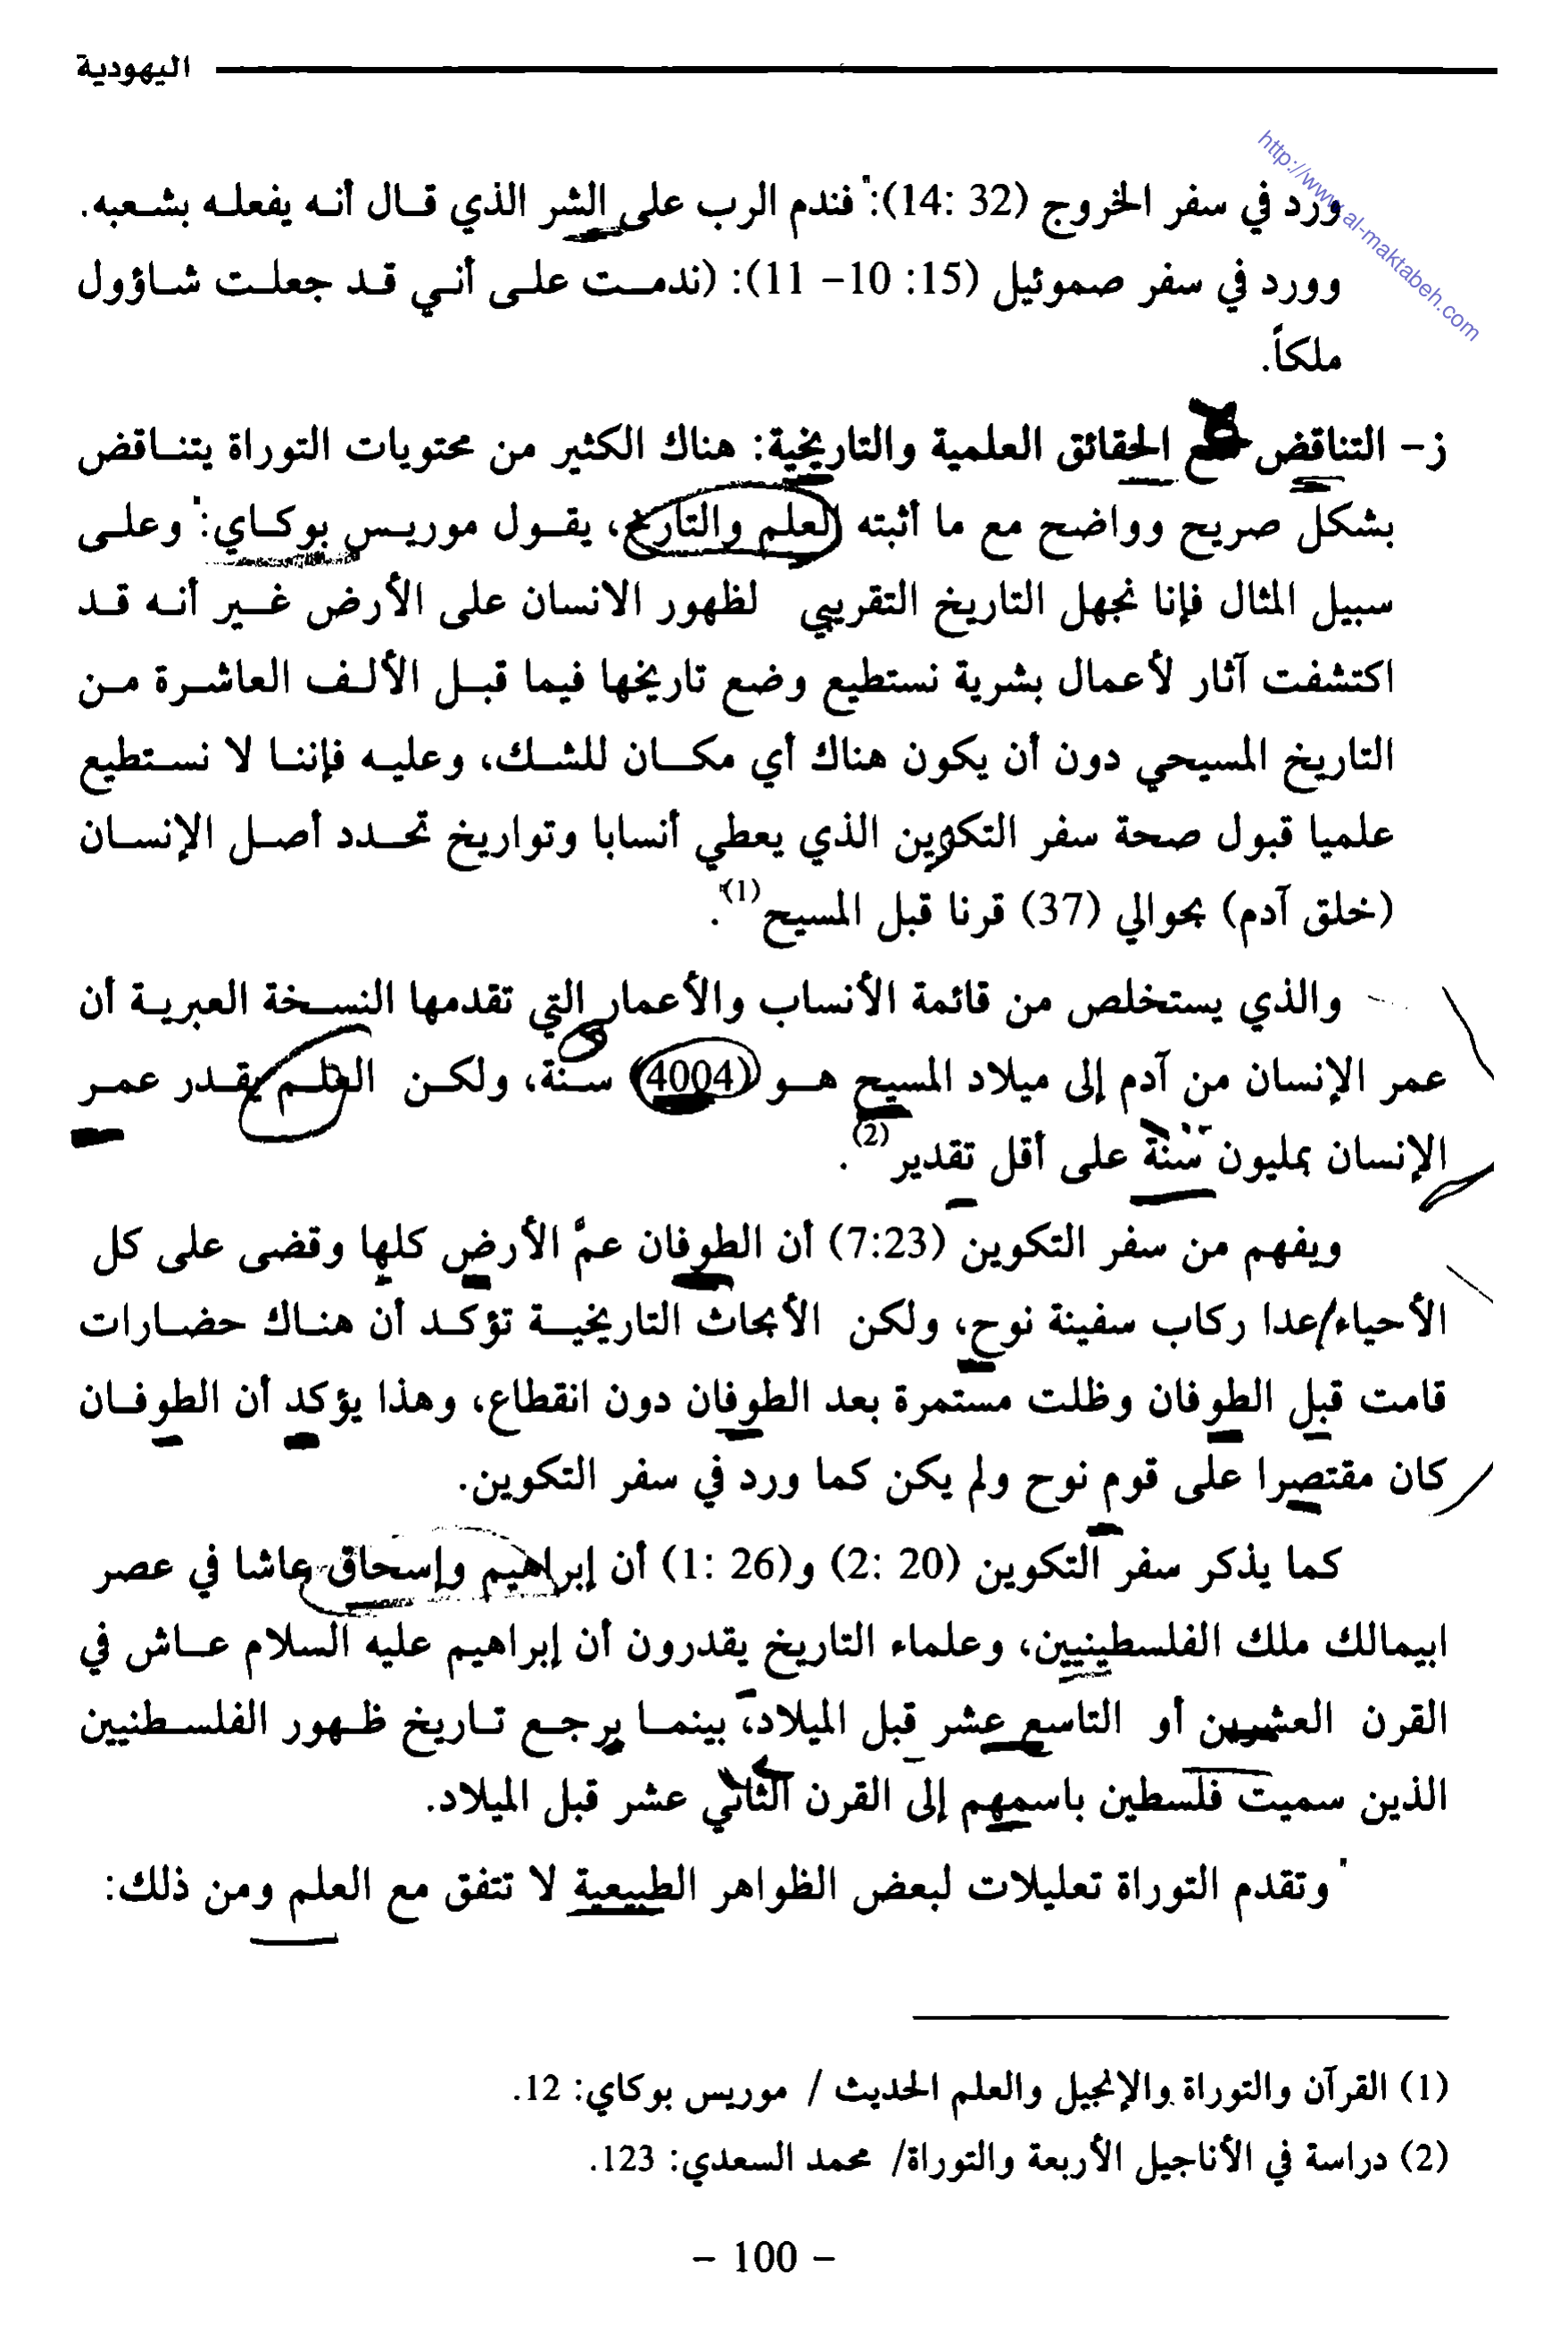 اليهودية
http://www.al-maktabeh.com
ورد في سفر الخروج (32 :14):"فندم الرب على الشر الذي قال أنه يفعله بشعبه.
وورد في سفر صموئيل (15: 10- 11): (ندمت على أني قد جعلت شاؤول
ملكاً.
ز- التناقض مع الحقائق العلمية والتاريخية: هناك الكثير من محتويات التوراة يتناقض
بشكل صريح وواضح مع ما أثبته العلم والتاريخ، يقول موريس بوكاي:"وعلى
سبيل المثال فإنا نجهل التاريخ التقريبي لظهور الانسان على الأرض غير أنه قد
اكتشفت آثار لأعمال بشرية نستطيع وضع تاريخها فيما قبل الألف العاشرة من
التاريخ المسيحي دون أن يكون هناك أي مكان للشك، وعليه فإننا لا نستطيع
علميا قبول صحة سفر التكوين الذي يعطي أنسابا وتواريخ تحدد أصل الإنسان
(خلق آدم) بحوالي (37) قرنا قبل المسيح"(1).
والذي يستخلص من قائمة الأنساب والأعمار التي تقدمها النسخة العبرية أن
عمر الإنسان من آدم إلى ميلاد المسيح هو (4004) سنة، ولكن العلم يقدر عمر
الإنسان بمليون سنة على أقل تقدير(2).
ويفهم من سفر التكوين (7:23) أن الطوفان عمَّ الأرض كلها وقضى على كل
الأحياء/عدا ركاب سفينة نوح، ولكن الأبحاث التاريخية تؤكد أن هناك حضارات
قامت قبل الطوفان وظلت مستمرة بعد الطوفان دون انقطاع، وهذا يؤكد أن الطوفان
كان مقتصرا على قوم نوح ولم يكن كما ورد في سفر التكوين.
كما يذكر سفر التكوين (20 :2) و(26 :1) أن إبراهيم وإسحاق عاشا في عصر
ابيمالك ملك الفلسطينيين، وعلماء التاريخ يقدرون أن إبراهيم عليه السلام عاش في
القرن العشرين أو التاسع عشر قبل الميلاد، بينما يرجع تاريخ ظهور الفلسطنيين
الذين سميت فلسطين باسمهم إلى القرن الثاني عشر قبل الميلاد.
"وتقدم التوراة تعليلات لبعض الظواهر الطبيعية لا تتفق مع العلم ومن ذلك:
(1) القرآن والتوراة والإنجيل والعلم الحديث / موريس بوكاي: 12.
(2) دراسة في الأناجيل الأربعة والتوراة/ محمد السعدي: 123.
- 100 -